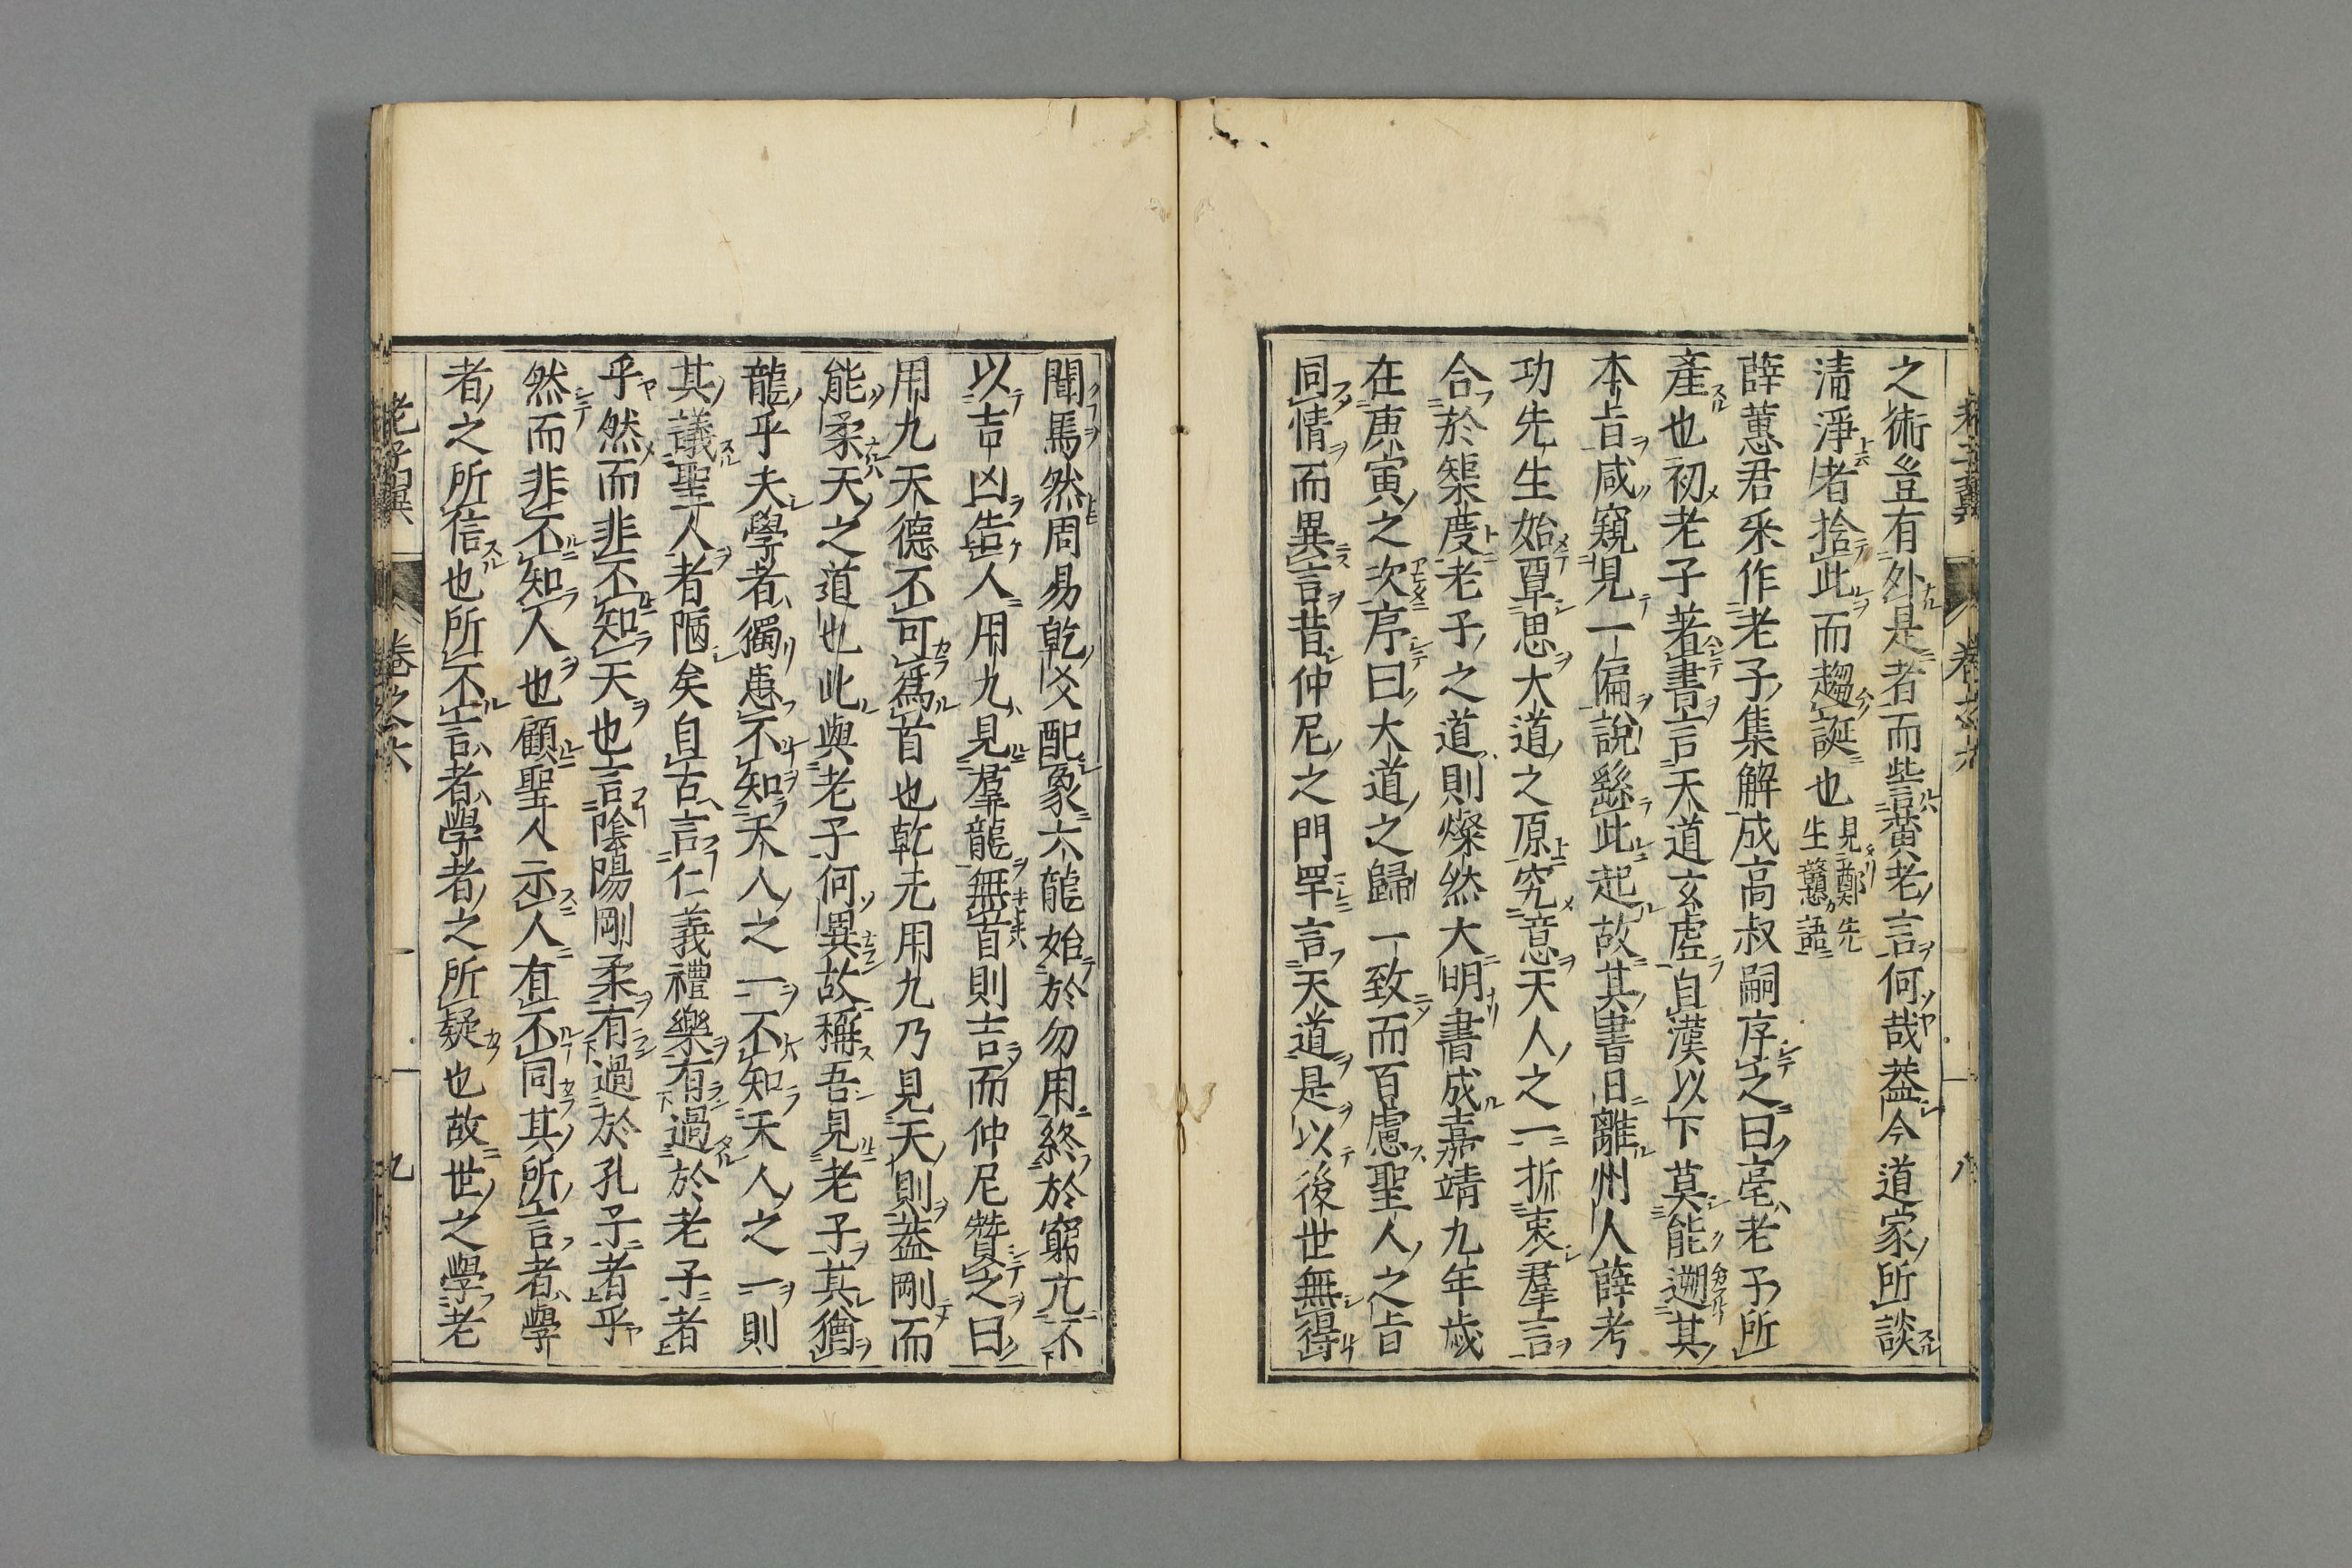 之術豈有外是者而訾黄老言何哉葢今道家所談
清淨者捨此而趨誕也見鄭先生蘁語
薛蕙君采作老子集解成高叔嗣序之曰亳老子所
產也初老子著書言天道玄虛自漢以下莫能遡其
本㫖咸窺見一偏說繇此起故其書日離州人薛考
功先生始覃思大道之原究意天人之一折衷羣言
合於榘度老子之道則燦然大明書成嘉靖九年歲
在庚寅之次序曰大道之歸一致而百慮聖人之㫖
同情而異言昔仲尼之門罕言天道是以後世無得
聞焉然周易乾爻配象六龍始於勿用終於窮亢不
以吉凶告人用九見羣龍無首則吉而仲尼贊之曰
用九天德不可爲首也乾元用九乃見天則葢剛而
能柔天之道也此與老子何異故稱吾見老子其猶
龍乎夫學者獨患不知天人之一不知天人之一則
其議聖人者陋矣自古言仁義禮樂有過於老子者
乎然而非不知天也言陰陽剛柔有過於孔子者乎
然而非不知人也顧聖人示人有不同其所言者學
者之所信也所不言者學者之所疑也故世之學老
老子翼 卷之六 九